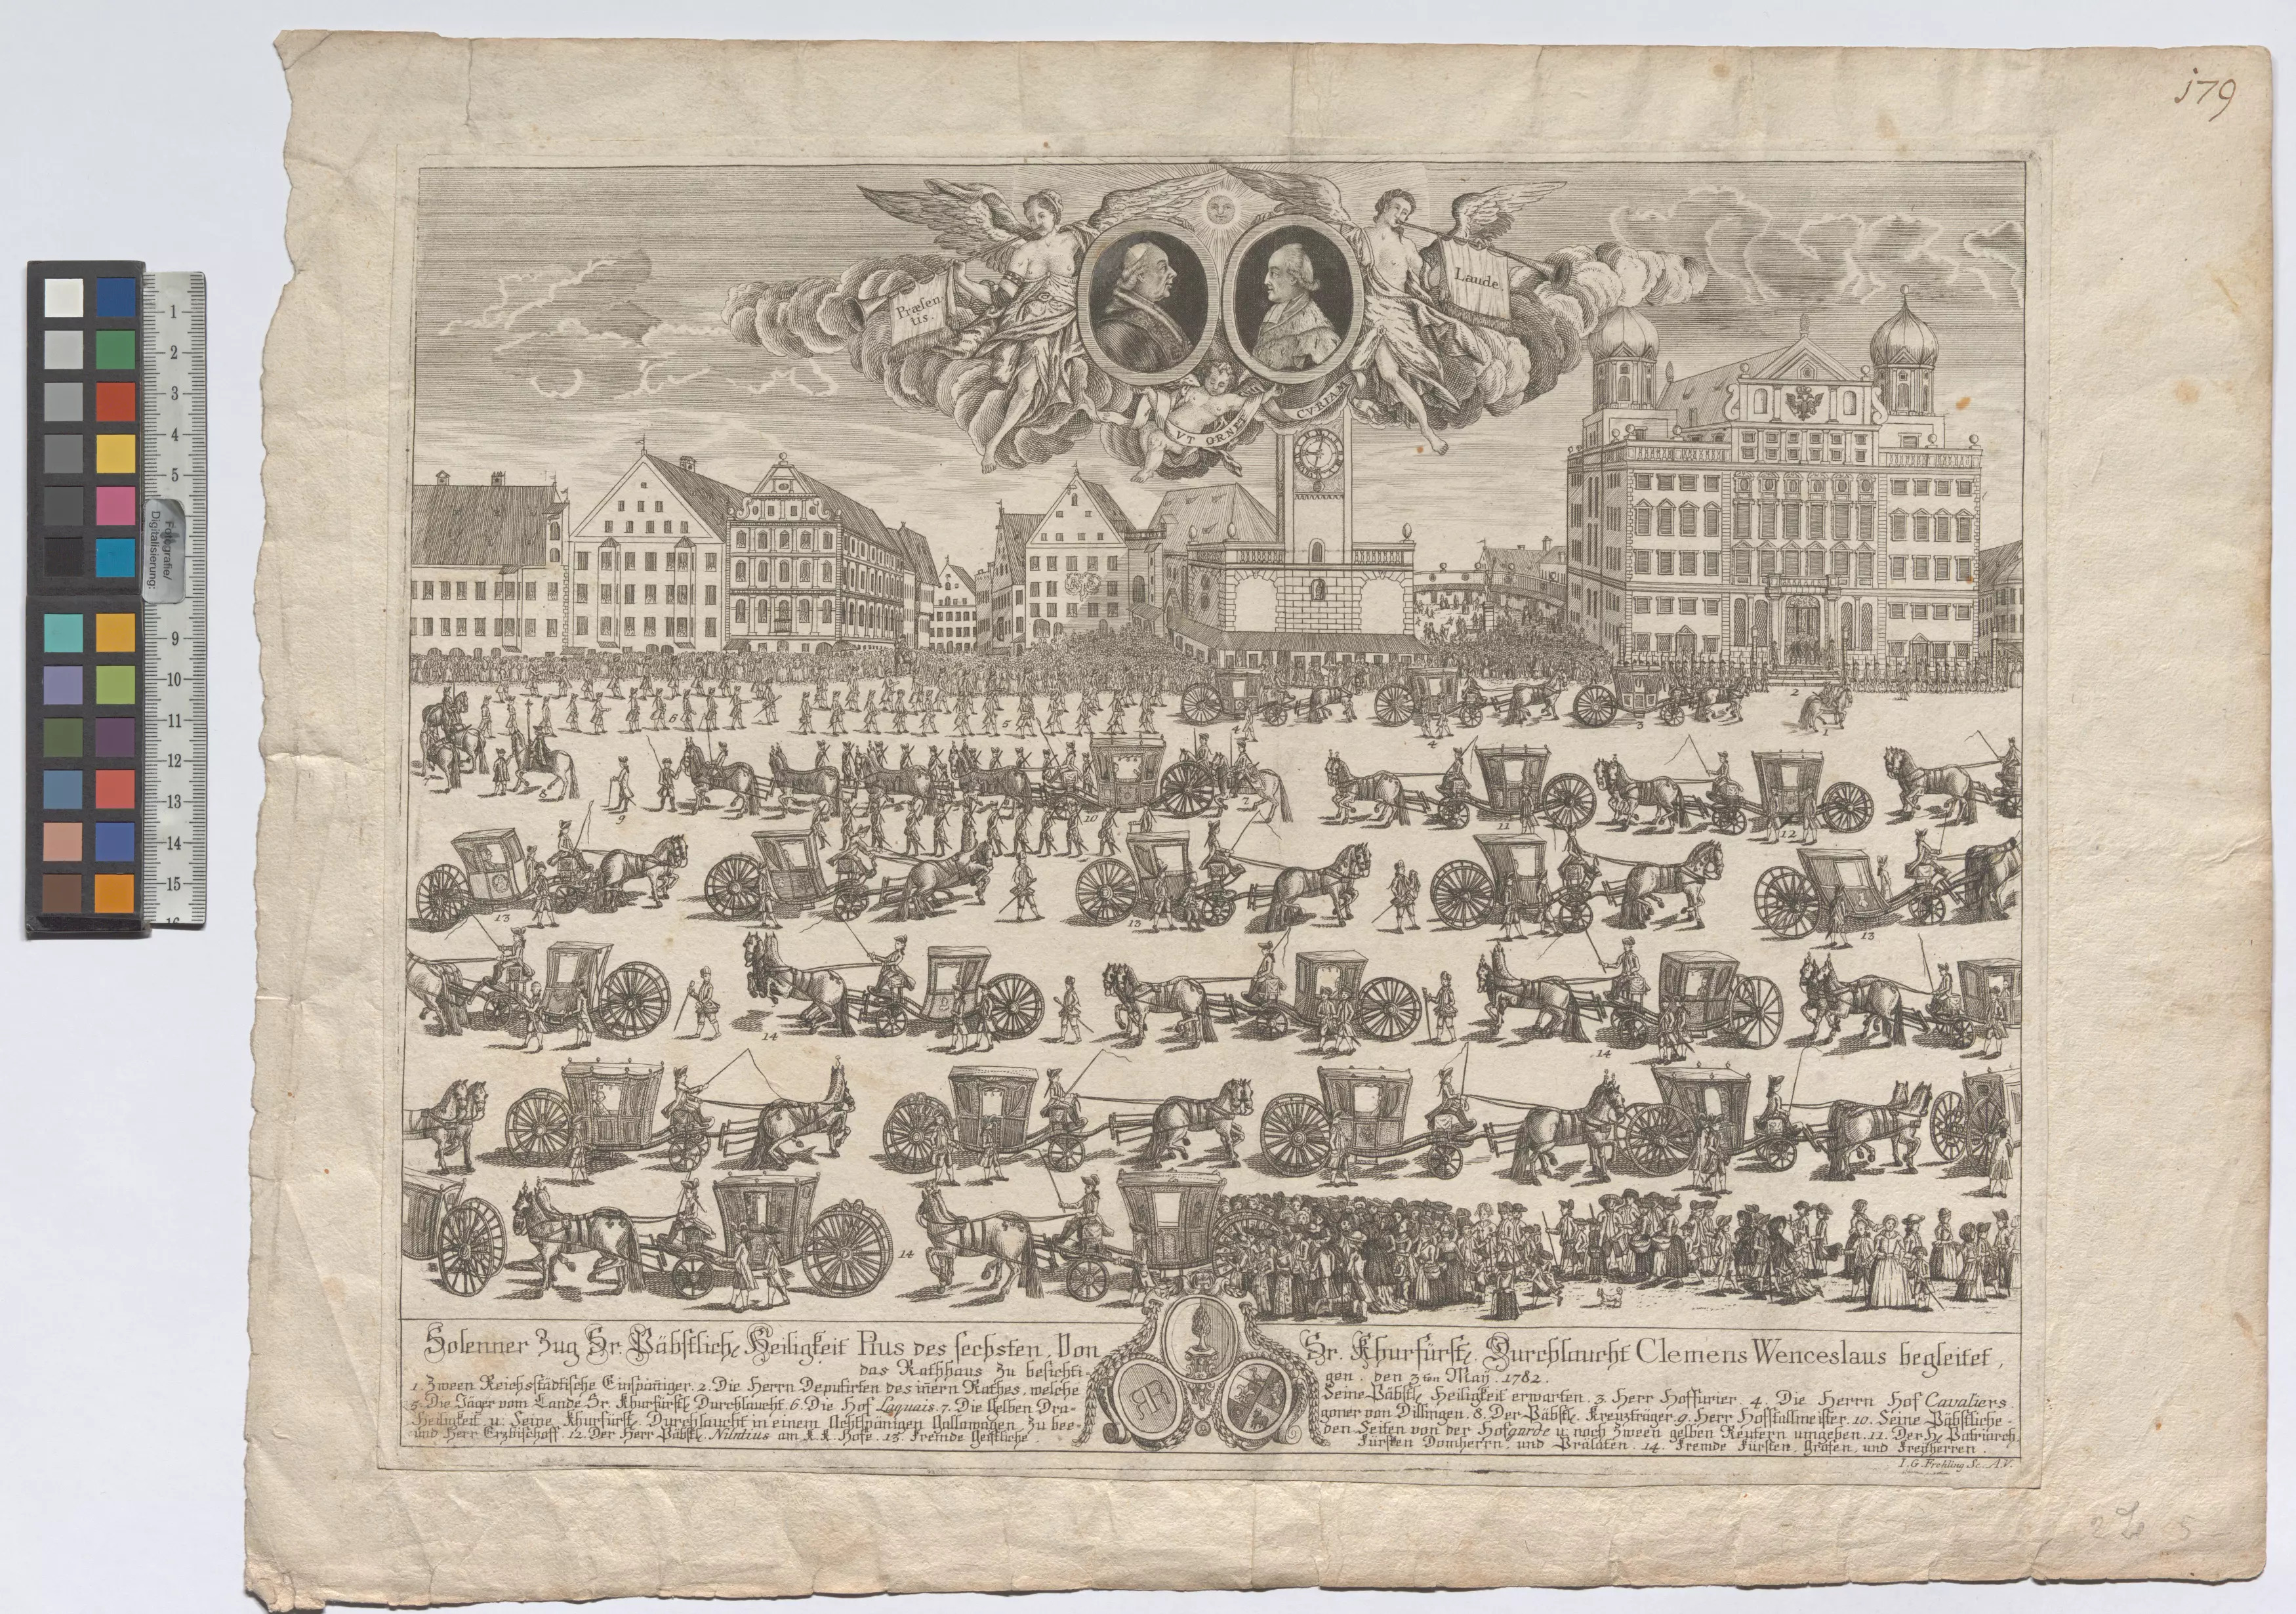 179
Præsen-
tis.
Laude.
VT ORNET
CVRIAM
Solenner Zug Sr. Päbstlich. Heiligkeit Pius des sechsten, Von Sr. Khurfürstl. Durchlaucht Clemens Wenceslaus begleitet,
das Rathhaus zu besichti- gen. den 3ten May. 1782.
1. Zween Reichsstädtische Einspäniger. 2. Die Herrn Deputirten des inern Rathes, welche Seine Päbstl. Heiligkeit erwarten. 3. Herr Hoffurier. 4. Die Herrn Hof Cavaliers.
5. Die Jäger vom Lande Sr. Khurfürstl. Durchlaucht. 6. Die Hof Laquais. 7. Die Gelben Dra- goner von Dillingen. 8. Der Päbstl. Kreuzträger. 9. Herr Hofstallmeister. 10. Seine Päbstliche-
Heiligkeit u. Seine Khurfürstl. Durchlaucht in einem Achtspänigen Gallawagen zu bee- den Seiten von der Hofgarde u. noch Zween gelben Reutern umgeben. 11. Der H. Patriarch,
und Herr Erzbischoff. 12. Der Herr Päbstl. Nuntius am K. K. Hofe. 13. Fremde Geistliche Fürsten Domherrn, und Prälaten. 14. Fremde Fürsten, Grafen, und Freyherren.
I. G. Frehling Sc. A.V.
1
2
3
4
4
5
6
7
7
8
9
10
11
12
13
13
13
14
14
14
Fotografie/
Digitalisierung:
1
2
3
4
5
9
10
11
12
13
14
15
16